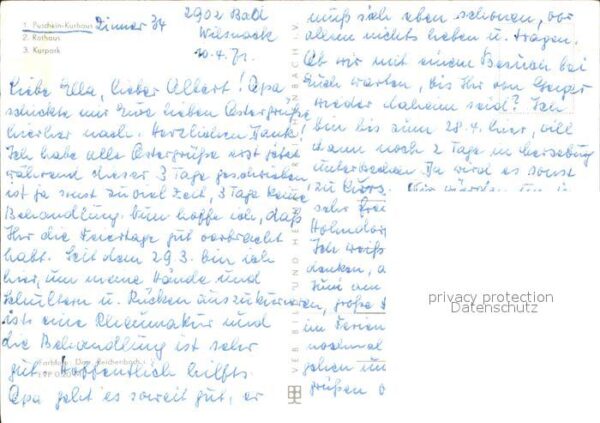 1. Puschkin-Kurhaus Zimmer 34
2. Rathaus
3. Kurpark
2902 Bad
Wilsnack
10.4.71.
Liebe Ella, lieber Albert! Opa
schickte mir Eure lieben Ostergrüße
hierher nach. Herzlichen Dank!
Ich habe alle Ostergrüße erst jetzt
während dieser 3 Tage geschrieben
ist ja sonst zuviel Zeit, 3 Tage keine
Behandlung. Nun hoffe ich, daß
Ihr die Feiertage gut verbracht
habt. Seit dem 29.3. bin ich
hier, um meine Hände und
Schultern u. Rücken auszukurieren,
ists eine Rheumakur und
die Behandlung ist sehr
gut. Hoffentlich hilfts.
Opa geht es soweit gut, er
muß sich eben schonen, vor
allem nichts heben u. tragen.
Ob wir mit einem Besuch bei
Euch warten, bis Ihr von
wieder daheim seid? Ich
bin bis zum 28.4. hier, will
dann noch 2 Tage in Merseburg
unterbrechen. Da wird es sonst
zu kurz. Wir würden
sehr
Ich weiß
denken,
Juni
große
im Ferien
nochmal
gehen
grüßen
VEB BILD UND HEIMAT REICHENBACH
privacy protection
Datenschutz